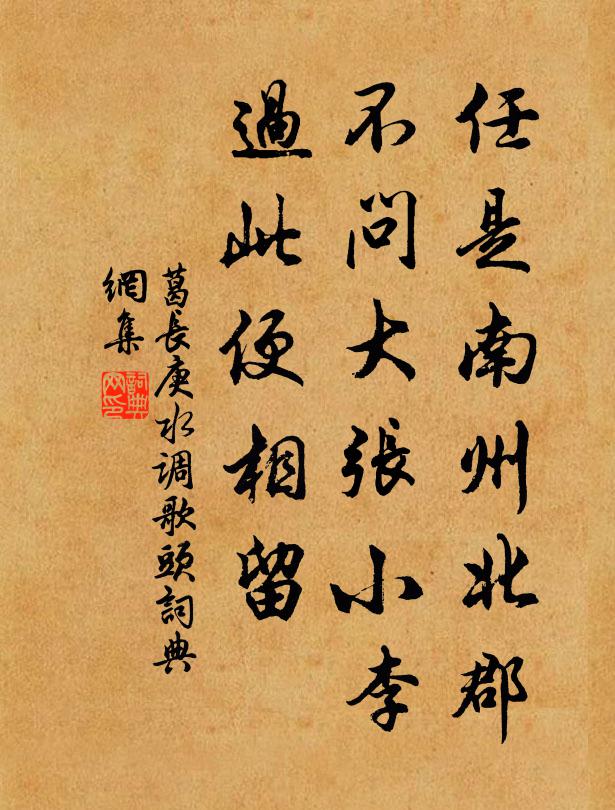 任是南州北郡
不問大張小李
過此便相留
葛長庚水调歌頭詞典
網集
詞典
网印